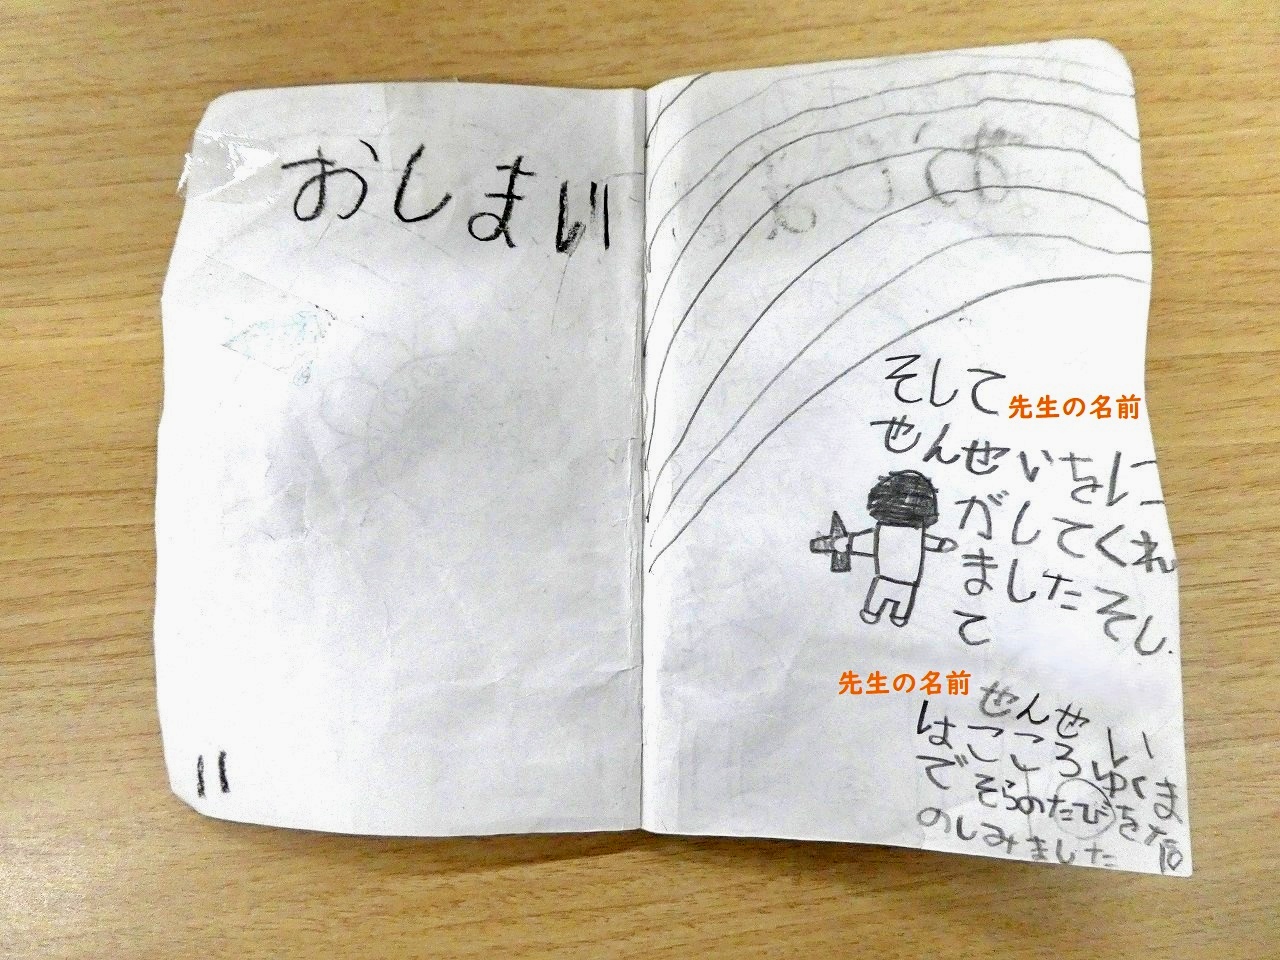 おしまい
11
そして
先生の名前
せんせいをに
がしてくれ
ましたそし
て
先生の名前
せんせい
はこころゆくま
でそらのたびをた
のしみました
10